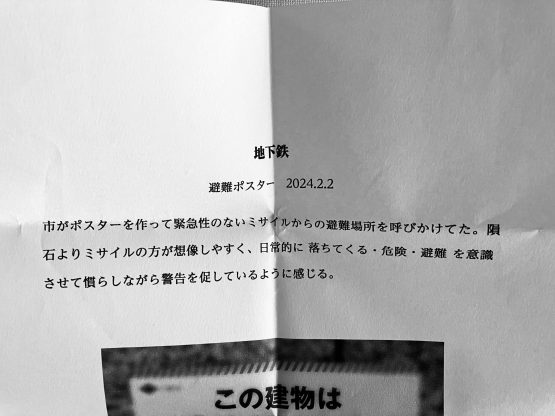 地下鉄
避難ポスター 2024.2.2
市がポスターを作って緊急性のないミサイルからの避難場所を呼びかけてた。隕
石よりミサイルの方が想像しやすく、日常的に 落ちてくる・危険・避難 を意識
させて慣らしながら警告を促しているように感じる。
この建物は